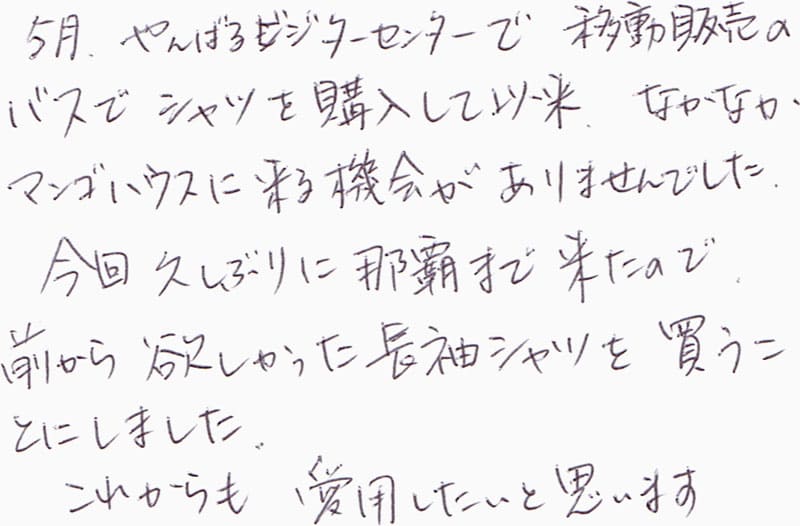 5月、やんばるビジターセンターで 移動販売の
バスで シャツを購入して以来、なかなか
マンゴハウスに来る機会がありませんでした。
今回 久しぶりに那覇まで来たので、
前から欲しかった長袖シャツを買うこ
とにしました。
これからも 愛用したいと思います